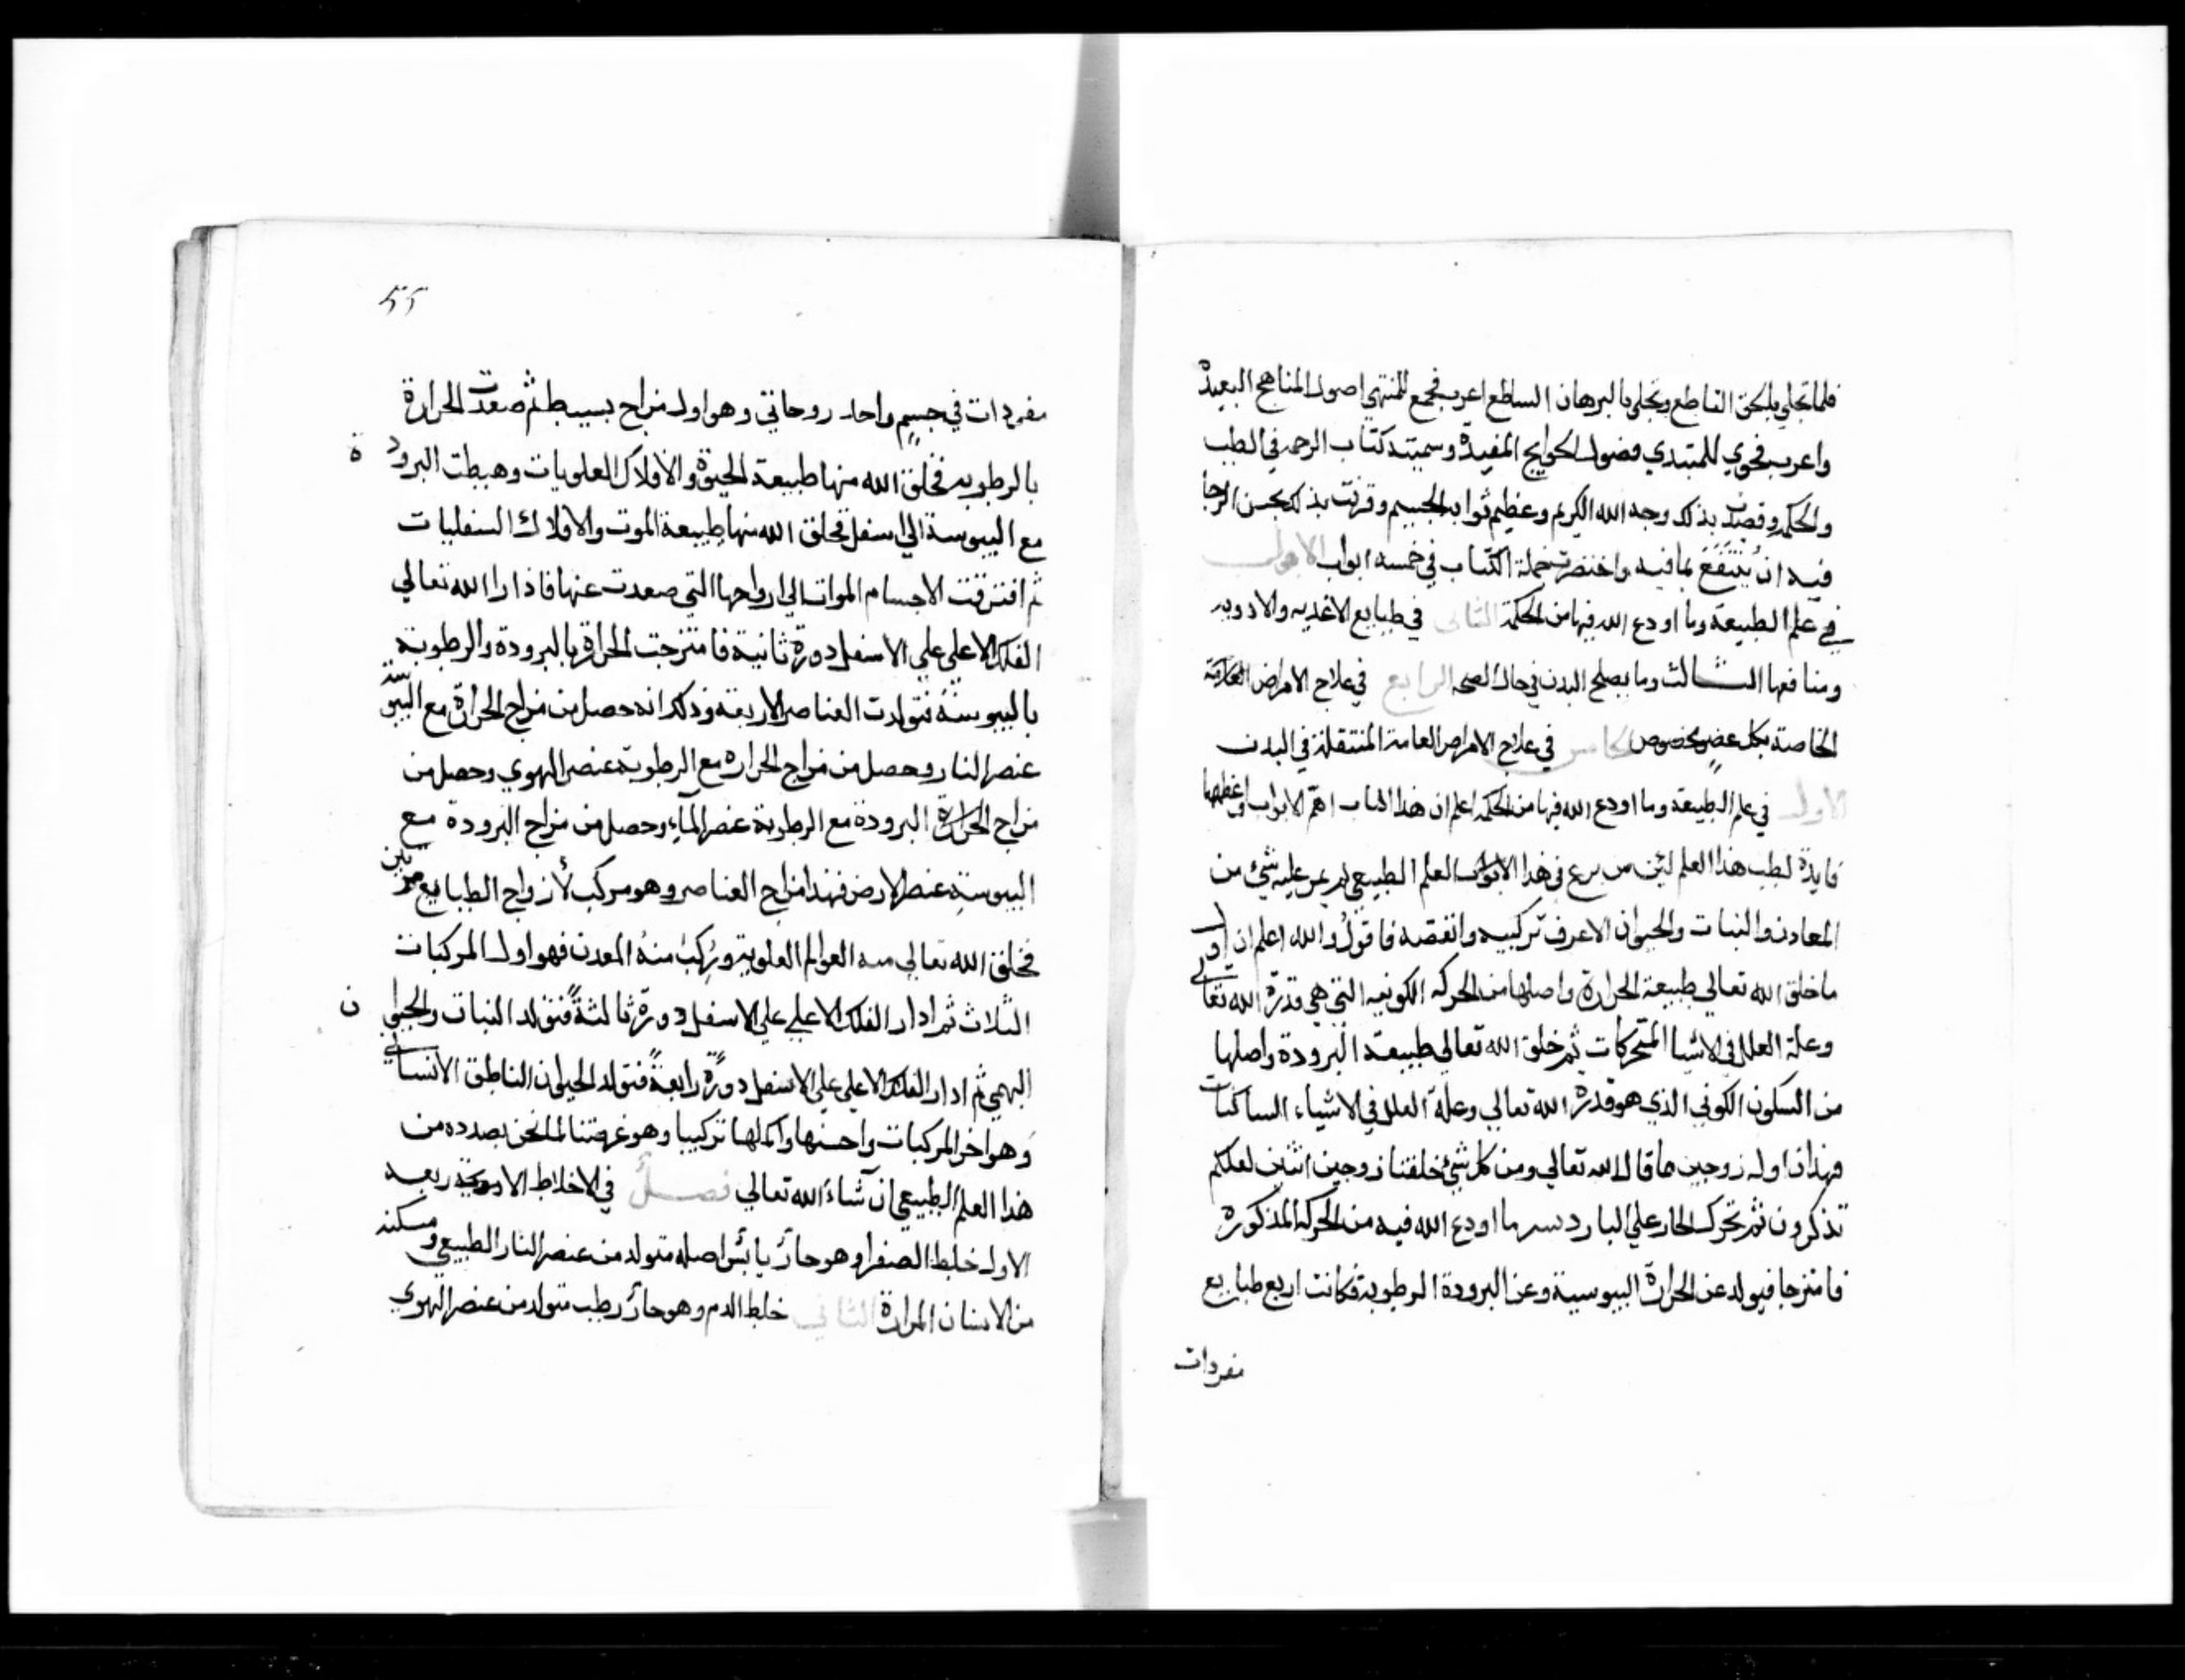 فلما تجلي بالحق القاطع وتجلي بالبرهان الساطع اعرب فجمع للمنتهي اصول المناهج البعيدة
واعرب فحوي للمبتدي فضول الحوايج المفيدة وسميته كتاب الرحمه في الطب
والحكمه وقصدت بذلك وجه الله الكريم وعظيم ثوابه الجسيم وقرنت بذلك بحسن الرجا
فيه ان ينتفع بما فيه واختصرت جملة الكتاب في خمسه ابواب الاول
في علم الطبيعة وما اودع الله فيها من الحكمة الثاني في طبايع الاغديه والادويه
ومنافعها الثالث وما يصلح البدن في حال الصحه الرابع في علاج الامراض
الخاصة بكل عضو مخصوص الخامس في علاج الامراض العامة المنتقلة في البدن
الاول في علم الطبيعة وما اودع الله فيها من الحكمه اعلم ان هذا الباب اهم الابواب واعظمها
فايدة لطب هذا العلم لئن من برع في هذا الابواب العلم الطبيعي لم يمر عليه شئ من
المعادن والنبات والحيوان الاعرف تركيبه وانقصه فاقول والله اعلم ان اول
ما خلق الله تعالي طبيعة الحرارة واصلها من الحركه الكونيه التي هي قدرة الله تعالي
وعلة العلل في الاشيا المتحركات ثم خلق الله تعالي طبيعة البرودة واصلها
من السكون الكوني الذي هو قدرة الله تعالي وعلة العلل في الاشياء الساكنات
فهذان اول زوجين ما قال الله تعالي ومن كل شئ خلقنا زوجين اثنين لعلكم
تذكرون ثم تحرك الحار علي البارد بسر ما اودع الله فيه من الحركة المذكورة
فامتزجا فيولد عن الحرارة اليبوسية وعن البرودة الرطوبة فكانت اربع طبايع
مفردات
٥٥
مفردات في جسم واحد روحاني وهو اول مزاج بسيط ثم صعدت الحرارة
بالرطوبه فخلق الله منها طبيعة الحيوة والافلاك العلويات وهبطت البرودة
مع اليبوسة الي اسفل فخلق الله منها طبيعة الموت والافلاك السفليات
ثم افترقت الاجسام الموات الي ارواحها التي صعدت عنها فاذارا الله تعالي
الفلك الاعلي علي الاسفل دورة ثانية فامتزجت الحرارة بالبرودة والرطوبة
باليبوسة فتولدت العناصر الاربعة وذلك انه حصل من مزاج الحرارة مع اليبوسة
عنصر النار وحصل من مزاج الحرارة مع الرطوبة عنصر الهوي وحصل من
مزاج الحرارة البرودة مع الرطوبة عنصر المآء وحصل من مزاج البرودة مع
اليبوسة عنصر الارض فهذا مزاج العناصر وهو مركب لأزواج الطبايع مرتين
فخلق الله تعالي منه العوالم العلوية وركب منه المعدن فهو اول المركبات
الثلاث ثم ادار الفلك الاعلي علي الاسفل دورة ثالثة فتولد النبات والحيوان
البهمي ثم ادار الفلك الاعلي علي الاسفل دورة رابعة فتولد الحيوان الناطق الانساني
وهو اخر المركبات واحسنها واكملها تركيبا وهو غرضنا لما نحن بصدده من
هذا العلم الطبيعي ان شاء الله تعالي فصل في الاخلاط الاربعه
الاول خلط الصفرا وهو حار يابس اصله متولد من عنصر النار الطبيعي ومسكنه
من الانسان المرارة الثاني خلط الدم وهو حار رطب متولد من عنصر الهوي